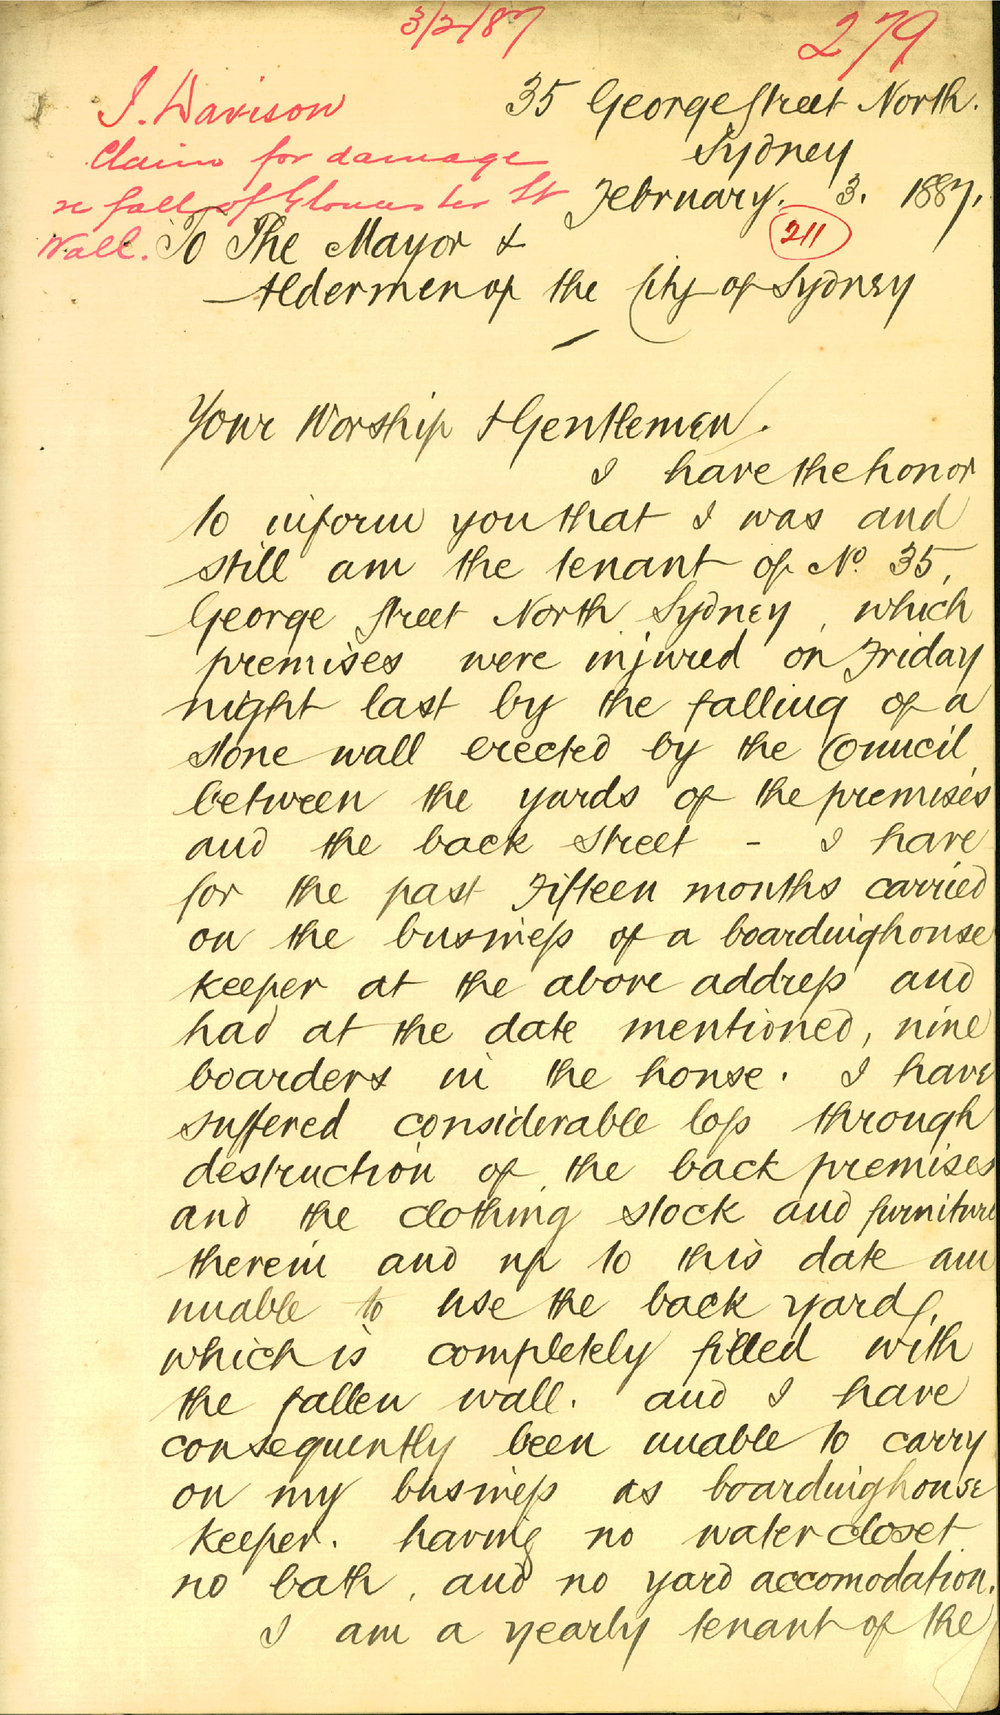 3/2/87
279
J. Davison
Claim for damage
re fall of Gloucester St
Wall.
35 George Street North.
Sydney
February. 3. 1887.
211
To The Mayor &
Aldermen of the City of Sydney
Your Worship & Gentlemen.
I have the honor
to inform you that I was and
still am the tenant of No. 35,
George Street North Sydney, which
premises were injured on Friday
night last by the falling of a
stone wall erected by the Council
between the yards of the premises
and the back street - I have
for the past Fifteen months carried
on the business of a boardinghouse
keeper at the above address and
had at the date mentioned, nine
boarders in the house. I have
suffered considerable loss through
destruction of the back premises
and the clothing stock and furniture
therein and up to this date am
unable to use the back yard,
which is completely filled with
the fallen wall. and I have
consequently been unable to carry
on my business as boardinghouse
keeper. having no water closet
no bath, and no yard accomodation.
I am a yearly tenant of the